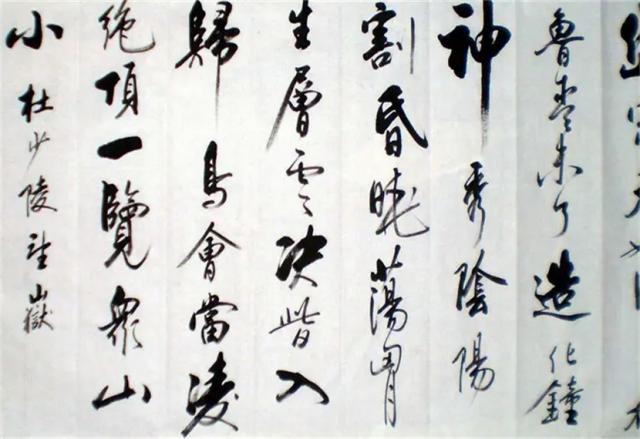 魯青未了造化鐘
神秀陰陽
割昏曉蕩胷
生層雲决眥入
歸鳥會當凌
絶頂一覽衆山
小杜少陵望嶽